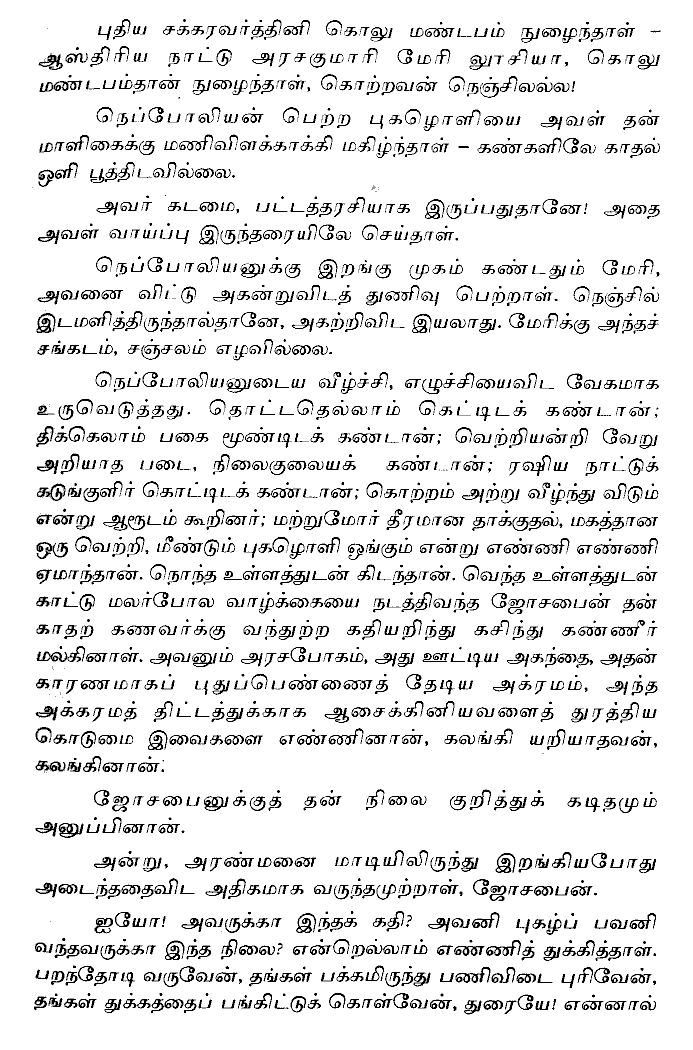 புதிய சக்கரவர்த்தினி கொலு மண்டபம் நுழைந்தாள் –
ஆஸ்திரிய நாட்டு அரசகுமாரி மேரி லூசியா, கொலு
மண்டபம்தான் நுழைந்தாள், கொற்றவன் நெஞ்சிலல்ல!
நெப்போலியன் பெற்ற புகழொளியை அவள் தன்
மாளிகைக்கு மணிவிளக்காக்கி மகிழ்ந்தாள் – கண்களிலே காதல்
ஒளி பூத்திடவில்லை.
அவர் கடமை, பட்டத்தரசியாக இருப்பதுதானே! அதை
அவள் வாய்ப்பு இருந்தரையிலே செய்தாள்.
நெப்போலியனுக்கு இறங்கு முகம் கண்டதும் மேரி,
அவனை விட்டு அகன்றுவிடத் துணிவு பெற்றாள். நெஞ்சில்
இடமளித்திருந்தால்தானே, அகற்றிவிட இயலாது. மேரிக்கு அந்தச்
சங்கடம், சஞ்சலம் எழவில்லை.
நெப்போலியனுடைய வீழ்ச்சி, எழுச்சியைவிட வேகமாக
உருவெடுத்தது. தொட்டதெல்லாம் கெட்டிடக் கண்டான்;
திக்கெலாம் பகை மூண்டிடக் கண்டான்; வெற்றியன்றி வேறு
அறியாத படை, நிலைகுலையக் கண்டான்; ரஷிய நாட்டுக்
கடுங்குளிர் கொட்டிடக் கண்டான்; கொற்றம் அற்று வீழ்ந்து விடும்
என்று ஆரூடம் கூறினர்; மற்றுமோர் தீரமான தாக்குதல், மகத்தான
ஒரு வெற்றி, மீண்டும் புகழொளி ஓங்கும் என்று எண்ணி எண்ணி
ஏமாந்தான். நொந்த உள்ளத்துடன் கிடந்தான். வெந்த உள்ளத்துடன்
காட்டு மலர்போல வாழ்க்கையை நடத்திவந்த ஜோசபைன் தன்
காதற் கணவர்க்கு வந்துற்ற கதியறிந்து கசிந்து கண்ணீர்
மல்கினாள். அவனும் அரசபோகம், அது ஊட்டிய அகந்தை, அதன்
காரணமாகப் புதுப்பெண்ணைத் தேடிய அக்ரமம், அந்த
அக்கரமத் திட்டத்துக்காக ஆசைக்கினியவளைத் துரத்திய
கொடுமை இவைகளை எண்ணினான், கலங்கி யறியாதவன்,
கலங்கினான்.
ஜோசபைனுக்குத் தன் நிலை குறித்துக் கடிதமும்
அனுப்பினான்.
அன்று, அரண்மனை மாடியிலிருந்து இறங்கியபோது
அடைந்ததைவிட அதிகமாக வருந்தமுற்றாள், ஜோசபைன்.
ஐயோ! அவருக்கா இந்தக் கதி? அவனி புகழ்ப் பவனி
வந்தவருக்கா இந்த நிலை? என்றெல்லாம் எண்ணித் துக்கித்தாள்.
பறந்தோடி வருவேன், தங்கள் பக்கமிருந்து பணிவிடை புரிவேன்,
தங்கள் துக்கத்தைப் பங்கிட்டுக் கொள்வேன், துரையே! என்னால்